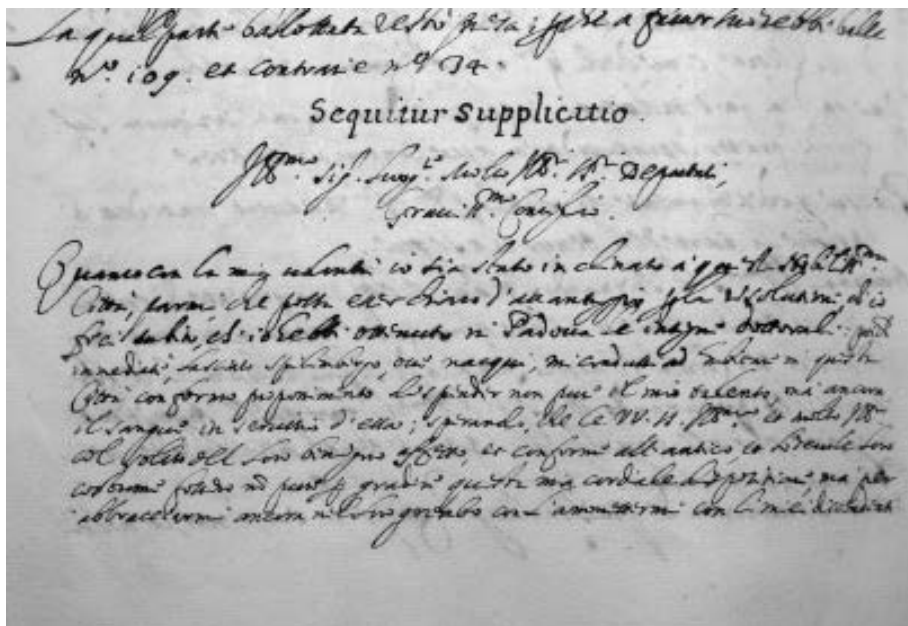 La qual parte ballottata restò presa, essere a favor
nº. 109. et contrarie nº 34
Sequitur supplicatio.
Ill.mo Sig. Luog.te Molto Ill.ri SS.ri Deputati,
Gravis.mo Consiglio.
Quanto con la mia volontà io sia stato inclinato a questa
Città, parmi, che possa esser chiaro d'avantaggio la risolutione ch'io
feci subito, ch'io hebbi ottenuto in Padova le insegne dottorali
immediate, lasciato Spilimbergo, ove nacqui, mi condussi ad habitar in questa
Città con fermo proponimento di spender non pure il mio talento, ma ancora
il sangue in servitio d'essa; sperando, che le VV. SS. Ill.me et molto Ill.
col solito del loro benigno affetto, et conforme all'antico et lodevole loro
costume non pure gradir questa mia cordiale dispositione ma per
abbracciarmi ancora nel loro grembo con l'ammettermi con li miei discendenti